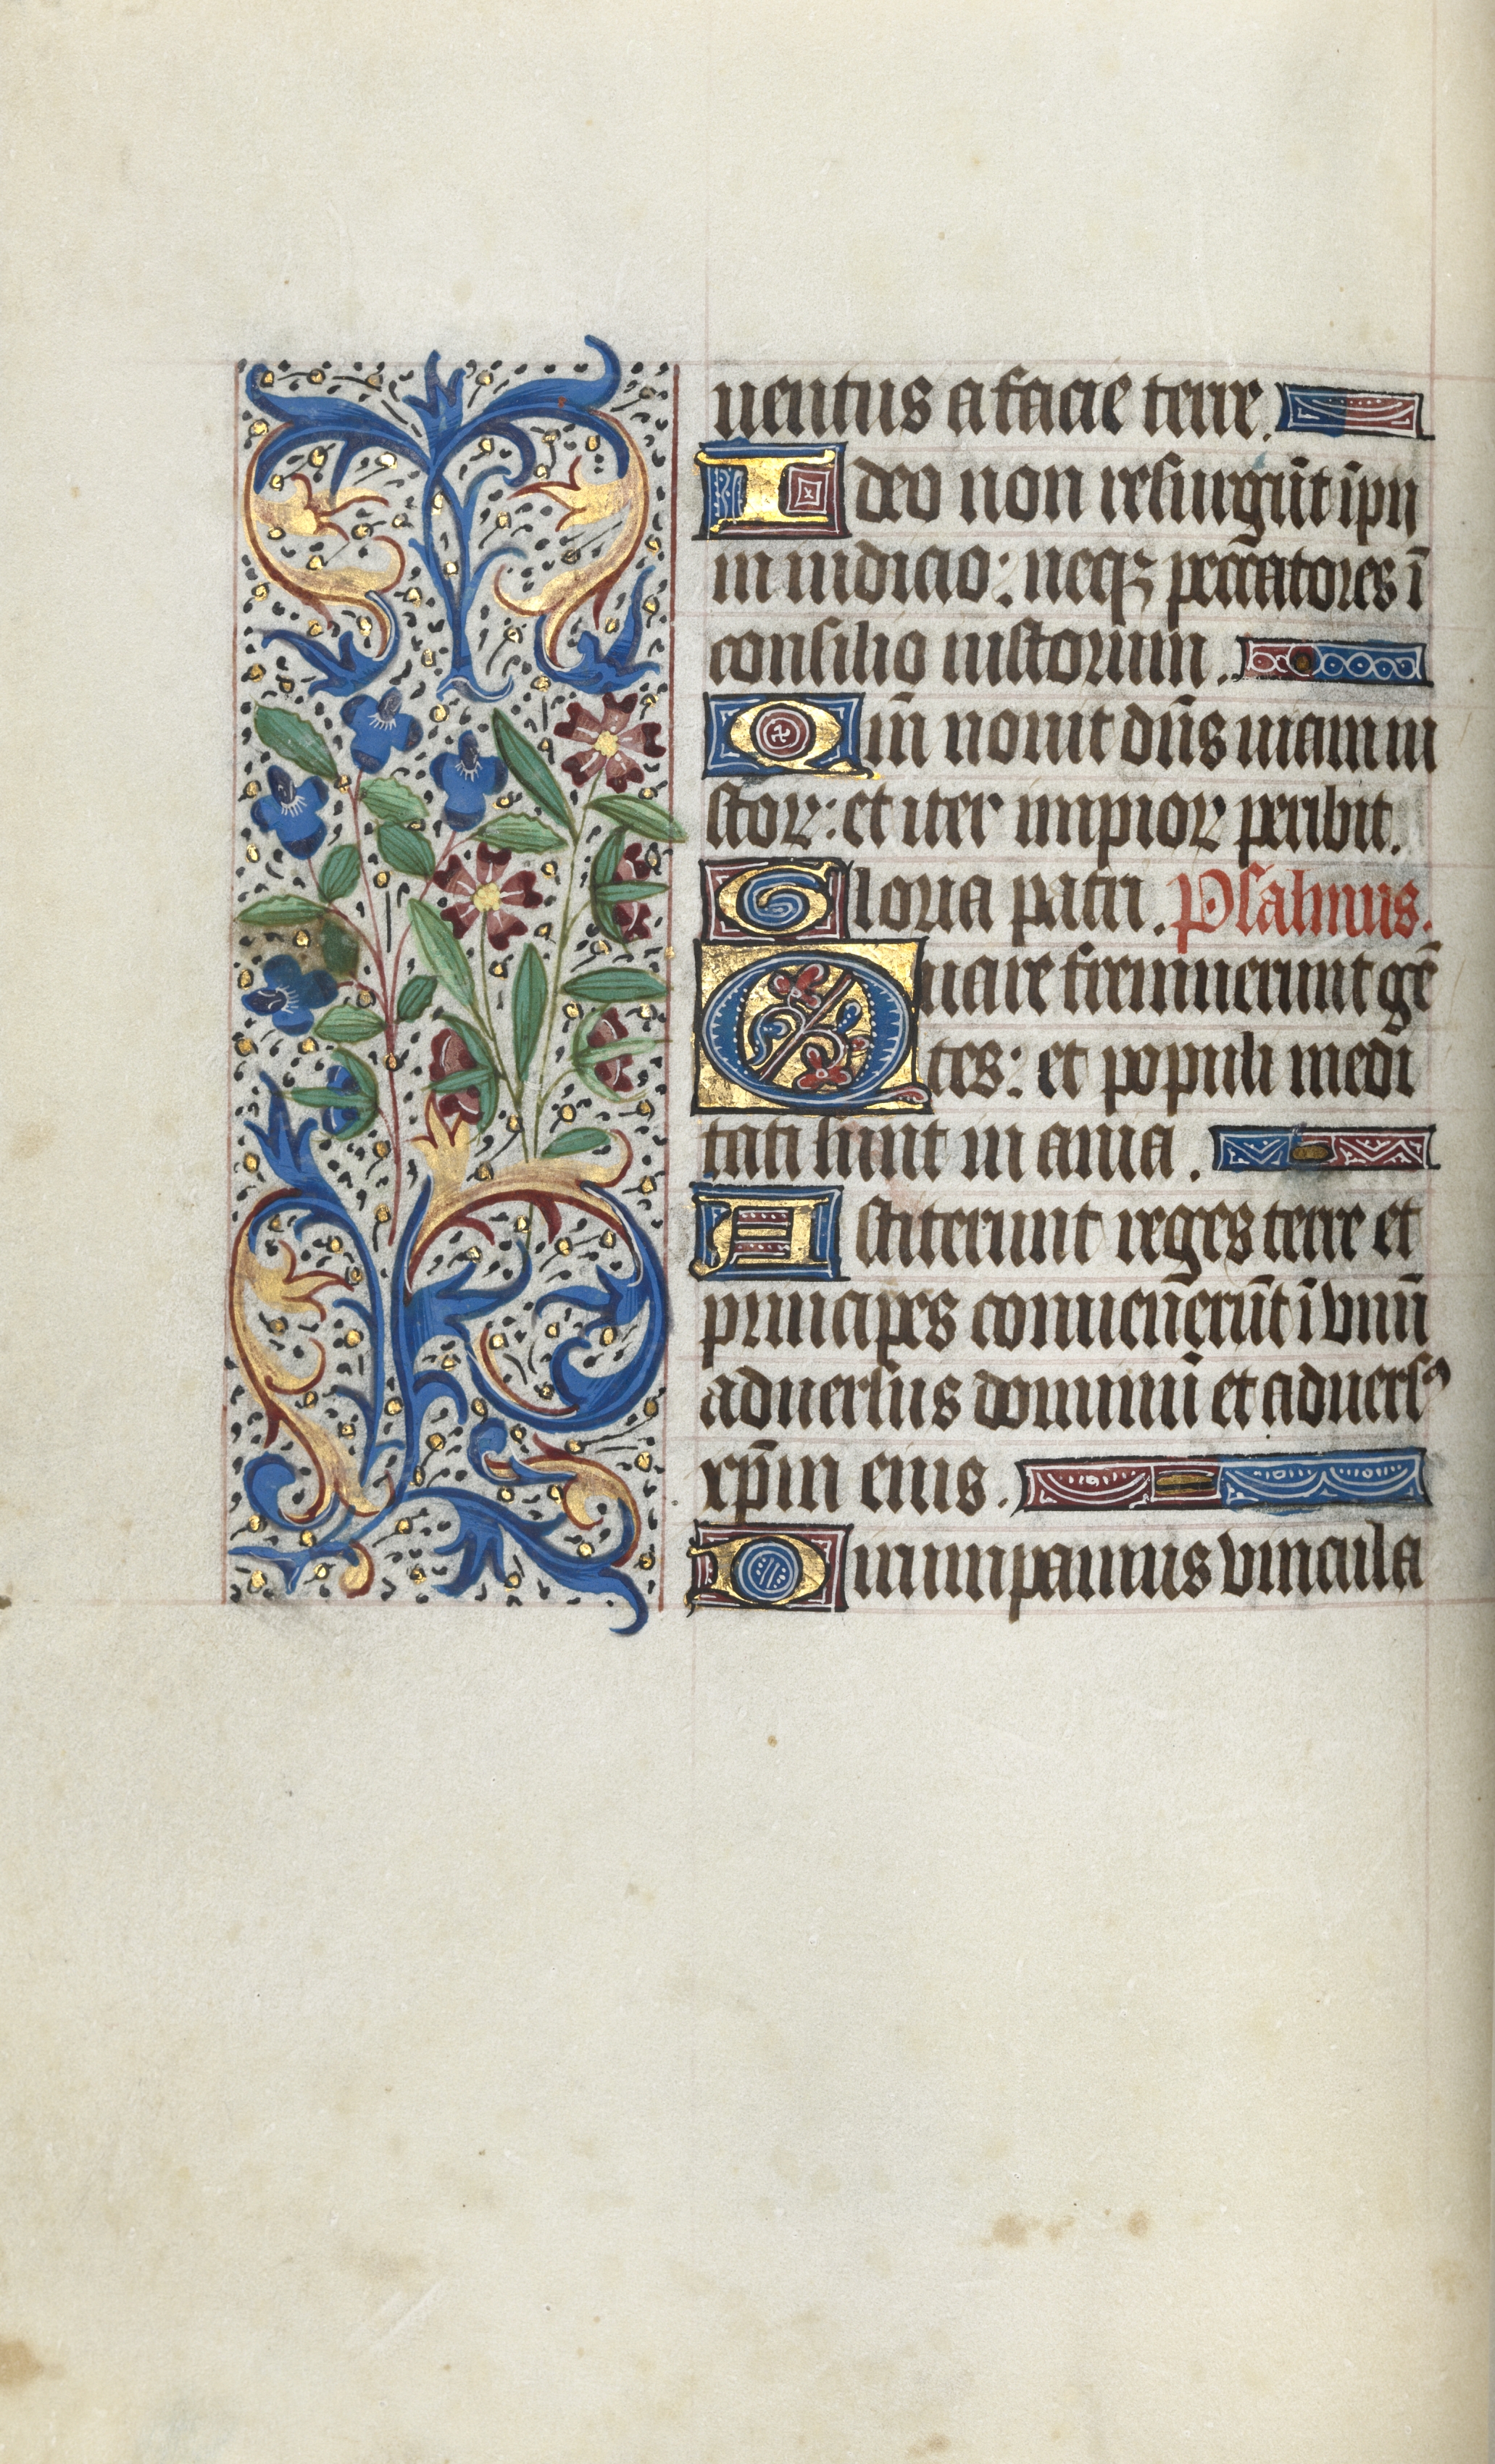 uentus a facie terre.
Ideo non resurgūt īpii
in iudicio: neqꝫ peccatores ī
consilio iustorum.
Qm̄ nouit dn̄s uiam iu
stoꝝ: et iter impioꝝ peribit.
Gloria patri. Psalmus.
Quare fremuerunt gē
tes: et populi medi
tati sunt inania.
Astiterunt reges terre et
principes conuenerūt ī vnū
aduersus dominū et aduersꝰ
xp̄m eius.
Dirumpamus vincula